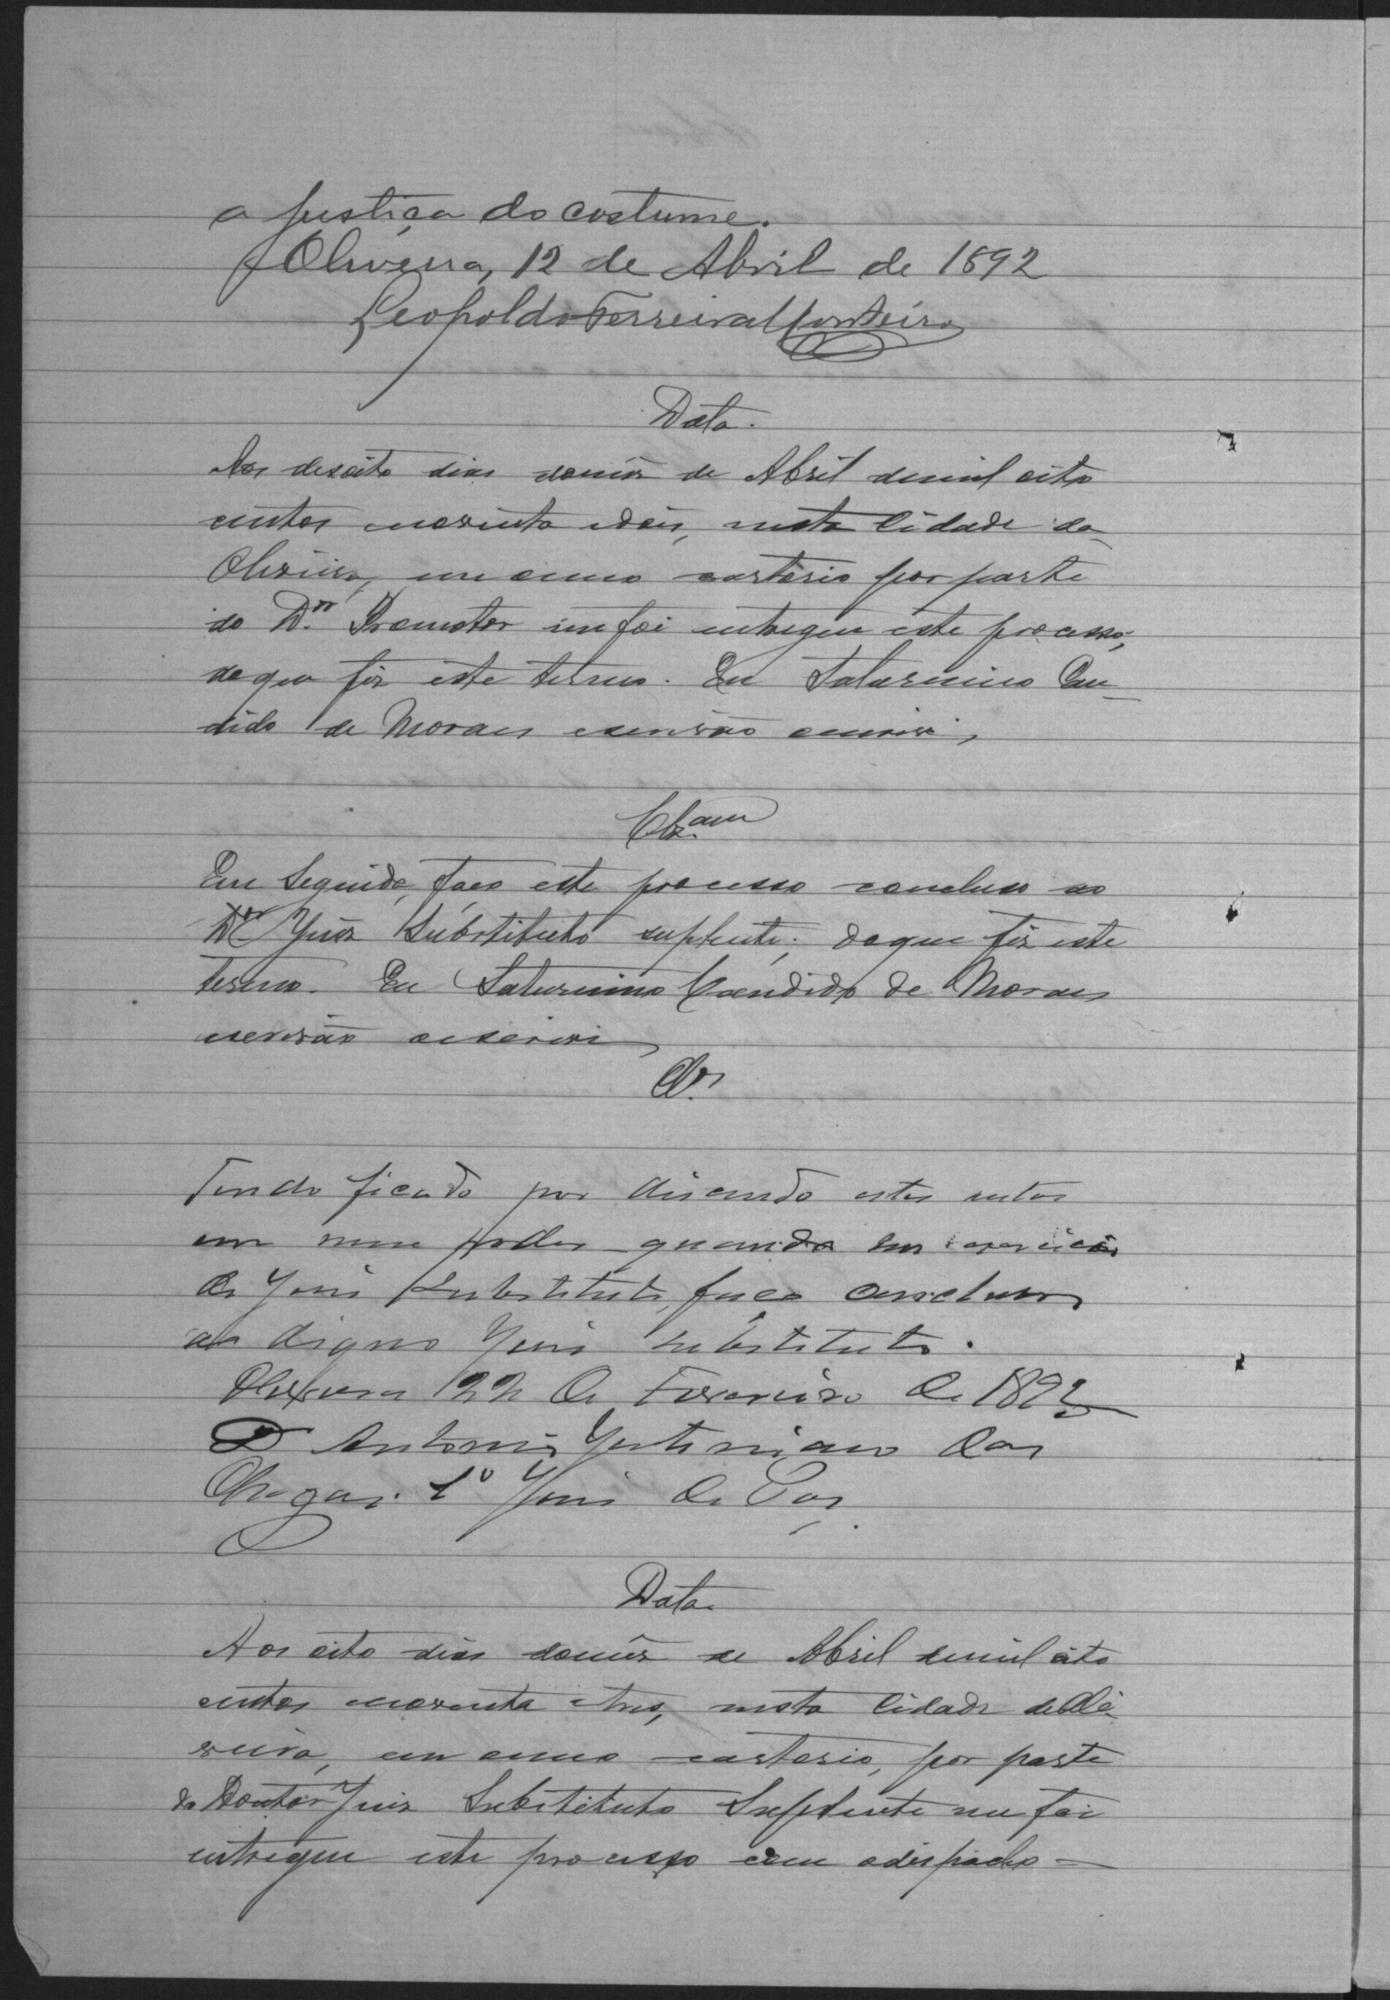 a justiça do costume.
Oliveira, 12 de Abril de 1892
Leopoldo Ferreira Monteiro
Data.
Aos desoito dias domês de Abril demil oito
centos noventa edois, nesta Cidade da
Oliveira, em meu cartorio por parte
do Dr. Promotor me foi entregue este processo,
doque fiz este termo. Eu Saturnino Can-
dido de Moraes escrivão escrivi,
Clz.am
Em Seguida, faço este processo concluso ao
Dr Juiz Substituto supplente; doque fiz este
termo. Eu Saturnino Candido de Moraes
escrivão escrivi
Cls
Tendo ficado por descuido estes autos
em meu poder quando em exercicio
de Juis Substituto, faço conclusos
ao digno Juis substituto.
Oliveira 22 de Fevereiro de 1893
Antonio Justiniano das
Chagas. 1º Juis de Pas
Data.
Aos oito dias domês de Abril demil oito
centos noventa etres, nesta Cidade deOli-
veira, em meu cartorio, por parte
do Doutor Juiz Substituto Supplente me foi
entregue este processo com odespacho